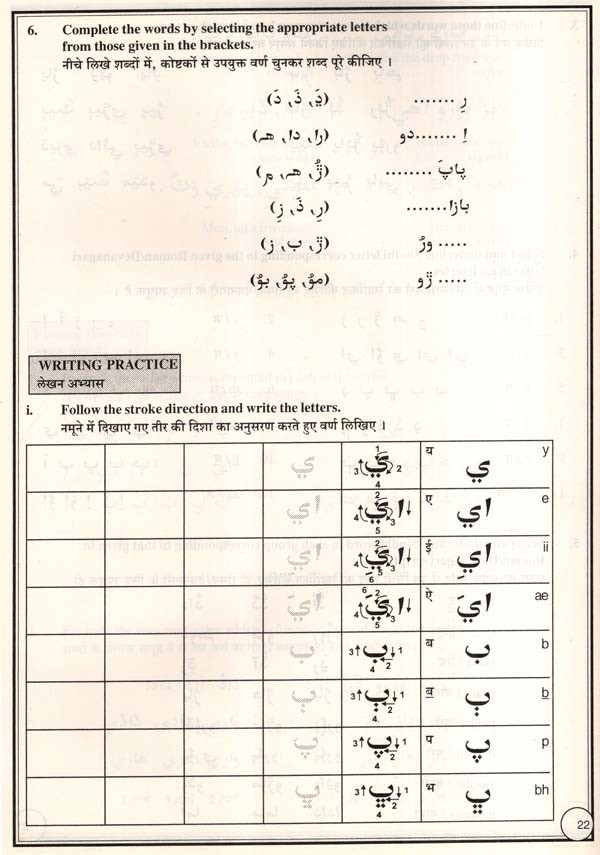 6. Complete the words by selecting the appropriate letters
from those given in the brackets.
नीचे लिखे शब्दों में, कोष्टकों से उपयुक्त वर्ण चुनकर शब्द पूरे कीजिए ।
رِ ....... (ڍَ، ذَ، دَ)
اِ .......دو (را، دا، هہ)
پاپَ ........ (ڙُ، هہ، م)
بازا....... (رِ، ذَ، زِ)
..... ورُ (ڙ، ب، ز)
..... ڙو (مُو، پُو، بُو)
WRITING PRACTICE
लेखन अभ्यास
i. Follow the stroke direction and write the letters.
नमूने में दिखाए गए तीर की दिशा का अनुसरण करते हुए वर्ण लिखिए ।
ي य ي y
اي ए اي e
اي ई اي ii
ايَ ऐ ايَ ae
ب ब ب b
ٻ ब॒ ٻ b
پ प پ p
ڀ भ ڀ bh
22